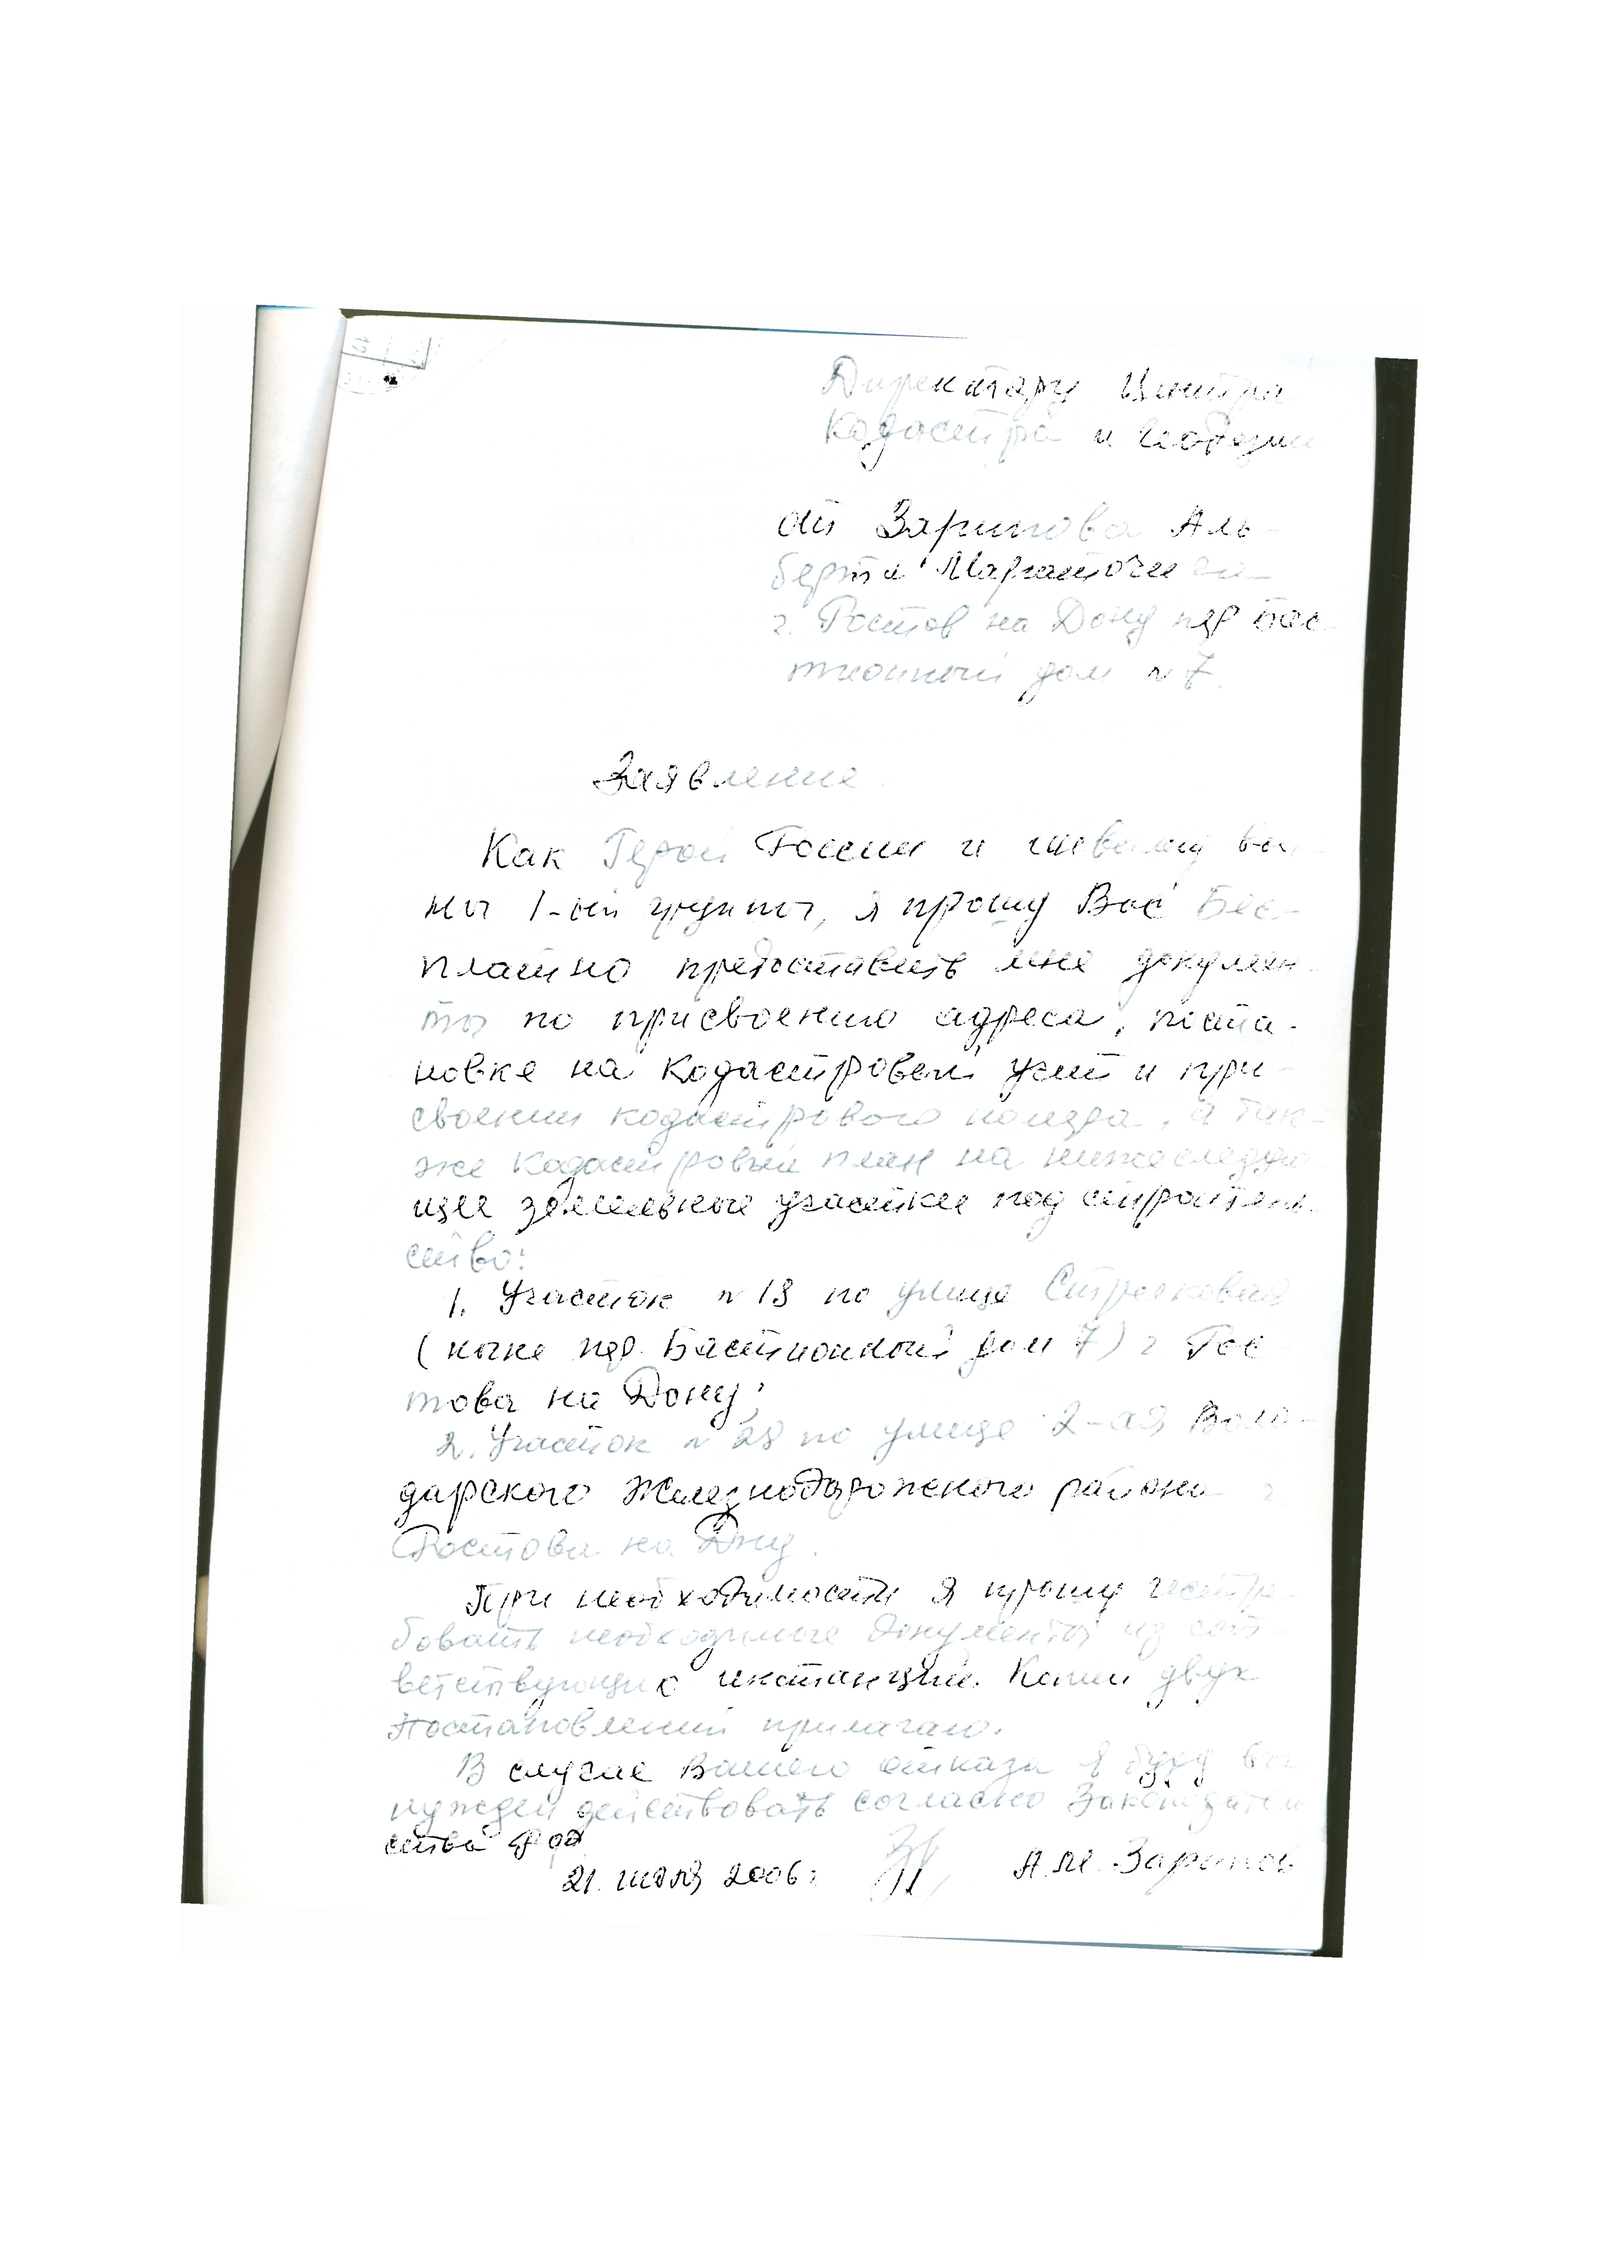 Директору Центра
Кодастра и Геодезии
от Зарипова Аль-
берта Маратови
г. Ростов на Дону пер Бас-
тионный дом № 7.
Заявление.
Как Герой России и
мы 1-ой группы, я прошу Вас Бес-
платно предоставить мне докумен-
ты по присвоению адреса, поста-
новке на Кодастровый учет и при-
своении кодастрового номера, а так-
же Кодастровый план на нижеследую
щее земельные участки под строитель
ство:
1. Участок № 13 по улице
(ныне пер. Бастионный дом 7) г Рос
това на Дону;
2. Участок № 28 по улице 2-ая Воло-
дарского Железнодорожного района г
Ростова на Дну.
При необходимости я прошу
бовать необходимые Документы из соот-
ветствующих инстанций. Копии двух
Постановлений прилагаю.
В случае Вашего отказа я буду вы
нужден действовать согласно Законодатель
ства РФ
21. июля 2006г А.М. Зарипов